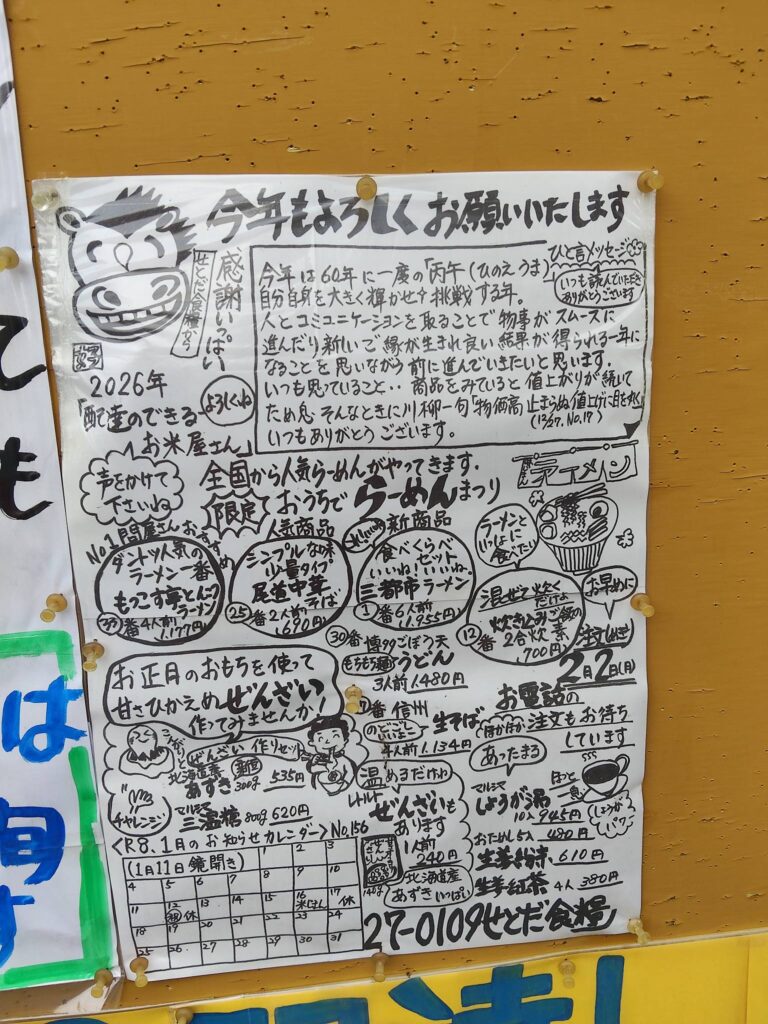 今年もよろしくお願いいたします
感謝いっぱい
せとだ食糧より
ひと言メッセージ
いつも読んでいただき
ありがとうございます
今年は60年に一度の「丙午(ひのえうま)
自分自身を大きく輝かせ挑戦する年。
人とコミュニケーションを取ることで物事がスムーズに
進んだり新しいご縁が生まれ良い結果が得られる一年に
なることを思いながら前に進んでいきたいと思います。
いつも思っていること‥商品をみていると値上がりが続いて
ため息 そんなときに川柳一句「物価高 止まらぬ値上げに目を丸く
いつもありがとうございます。
(12/27. No.17)
2026年
「配達のできる
お米屋さん」
よろしくね
声をかけて
下さいね
全国から人気らーめんがやってきます.
限定
おうちで らーめんまつり
ラーメン
No.1問屋さんおすすめ
ダントツ人気の
ラーメン一番
もっこす毎とんこつ
ラーメン
33番 4人前 1,177円
人気商品
シンプルな味
少量タイプ
尾道中華そば
25番 2人前 690円
新商品
食べくらべ
セット
いいね!いいね.
三都市ラーメン
1番 6人前 1,955円
ラーメンと
いっしょに
食べたい
混ぜて炊くだけよ
炊き込みご飯の素
12番 2合炊 700円
お早めに
注文しめきり
2月2日(月)
30番 博多ごぼう天
もちもち麺うどん
3人前 1,480円
お正月のおもちを使って
甘さひかえめ ぜんざい
作ってみませんか!
信州
のどごしいいよ
生そば
4人前 1,134円
お電話の
ほかほか注文もお待ち
しています
ぜんざい作りセット
北海道産
あずき 300g 535円
チャレンジ
三温糖 800g 620円
温めるだけね
レトルト
ぜんざいも
あります
1人前
240円
140g
北海道産
あずきいっぱい
あったまる
しょうが湯
10入 945円
ほっと一息
おためし5入 480円
生姜粉末 610円
生姜紅茶 4入 380円
しょうが
パワー
<R8.1月のお知らせカレンダー> No.156
(1月11日鏡開き)
1 2 3
4 5 6 7 8 9 10
11 12 13 14 15 16 17
祝 休 米はん 休
18 19 20 21 22 23 24
25 26 27 28 29 30 31
27-0109 せとだ食糧